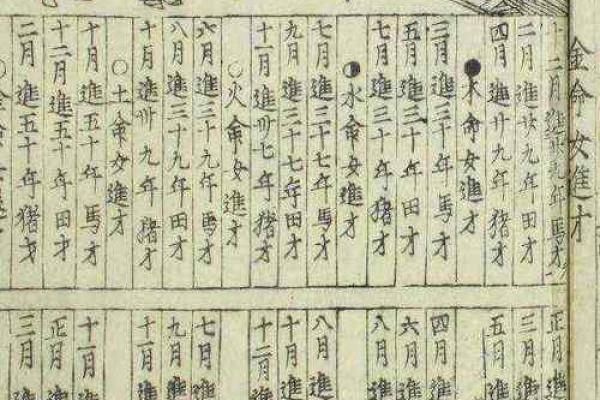 金命女進才
十二月進廿九年馬才
二月進廿九年田才
四月進廿九年猪才
●木命女進才
三月進三十年馬才
五月進三十年田才
七月進三十年猪才
◑水命女進才
七月進三十七年馬才
九月進三十七年田才
十一月進卅七年猪才
○火命女進才
六月進三十九年馬才
八月進三十九年田才
十月進卅九年猪才
○土命女進才
十月進五十年馬才
十二月進五十年田才
二月進五十年猪才
正月進
三月進
五月進
四月進
六月進
八月進
八月進
十月進
十二月進
七月進
九月進
十一月進
十一月進
正月進
三月進